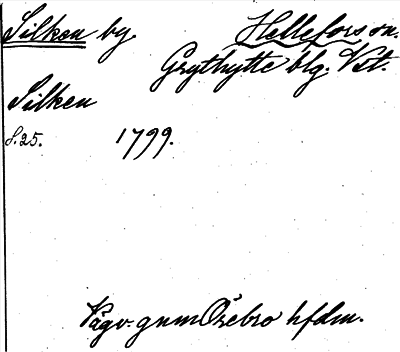 Silken by. Hellefors sn.
Grythytte blg. Vst.
Silken
S.25. 1799.
Vägv. gnm Örebro hfdm.